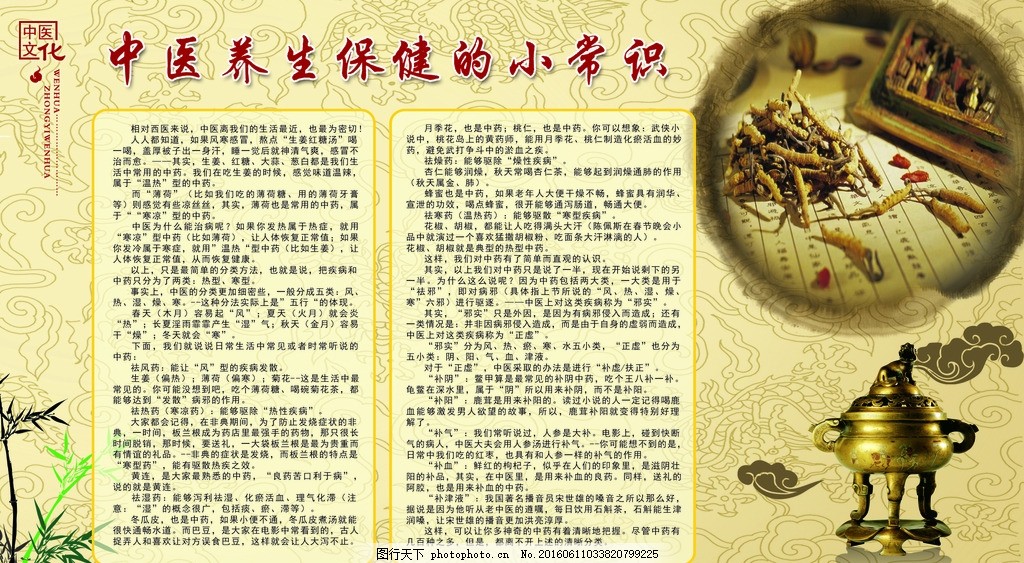 中医
文化
WENHUA
ZHONGYIWENHUA
中医养生保健的小常识
相对西医来说，中医离我们的生活最近，也最为密切！
人人都知道，如果风寒感冒，熬点“生姜红糖汤”喝
一喝，盖厚被子出一身汗，睡一觉后就神清气爽，感冒不
治而愈。——其实，生姜、红糖、大蒜、葱白都是我们生
活中常用的中药。我们在吃生姜的时候，感觉味道温辣，
属于“温热”型的中药。
而“薄荷”（比如我们吃的薄荷糖、用的薄荷牙膏
等）则感觉有些凉丝丝，其实，薄荷也是常用的中药，属
于““寒凉”型的中药。
中医为什么能治病呢？如果你发热属于热症，就用
“寒凉”型中药（比如薄荷），让人体恢复正常值；如果
你发冷属于寒症，就用”温热“型中药（比如生姜），让
人体恢复正常值，从而恢复健康。
以上，只是最简单的分类方法，也就是说，把疾病和
中药只分为了两类：热型、寒型。
事实上，中医的分类更加细密些，一般分成五类：风、
热、湿、燥、寒。--这种分法实际上是”五行“的体现。
春天（木月）容易起“风”；夏天（火月）就会炎
“热”；长夏淫雨霏霏产生“湿”气；秋天（金月）容易
于“燥”；冬天就会“寒”。
下面，我们就说说日常生活中常见或者时常听说的
中药：
祛风药：能让“风”型的疾病发散。
生姜（偏热）；薄荷（偏寒）；菊花--这是生活中最
常见的。你可能没想到吧，吃个薄荷糖、喝碗菊花茶，都
能够达到“发散”病邪的作用。
祛热药（寒凉药）：能够驱除“热性疾病”。
大家都会记得，在非典期间，为了防止发烧症状的非
典，一时间，板兰根成为药店里最强手的药物，那只很长
时间脱销，那时候，要送礼，一大袋板兰根是最为贵重而
有情谊的礼品。--非典的症状是发烧，而板兰根的特点是
“寒型药”，能有驱散热疾之效。
黄连，是大家最熟悉的中药，“良药苦口利于病”，
说的就是黄连。
祛湿药：能够泻利祛湿、化瘀活血、理气化滞（注
意：“湿”的概念很广，包括痰、瘀、滞等）。
冬瓜皮，也是中药，如果小便不通，冬瓜皮煮汤就能
很快通畅水道。而巴豆，是大家在电影中常看到的，古人
捉弄人和喜欢让对方误食巴豆，这样就会让人大泻不止。
月季花，也是中药；桃仁，也是中药。你可以想象：武侠小
说中，桃花岛上的黄药师，能用月季花、桃仁制造化瘀活血的妙
药，避免武打争斗中的淤血之疾。
祛燥药：能够驱除“燥性疾病”。
杏仁能够润燥，秋天常喝杏仁茶，能够起到润燥通肺的作用
（秋天属金、肺）。
蜂蜜也是中药，如果老年人大便干燥不畅，蜂蜜具有润华、
宣泄的功效，喝点蜂蜜，很开能够通泻肠道，畅通大便。
祛寒药（温热药）：能够驱散“寒型疾病”。
花椒、胡椒，都能让人吃得满头大汗（陈佩斯在春节晚会小
品中就演过一个喜欢猛撒胡椒粉、吃面条大汗淋漓的人）。
花椒、胡椒就是典型的热型中药。
这样，我们对中药有了简单而直观的认识。
其实，以上我们对中药只是说了一半，现在开始说剩下的另
一半。为什么这么说呢？因为中药包括两大类，一大类是用于
“祛邪”，即对病邪（具体指上节所说的“风、热、湿、燥、
寒”六邪）进行驱逐。——中医上对这类疾病称为“邪实”。
其实，“邪实”只是外因，是因为有病邪侵入而造成；还有
一类情况是：并非因病邪侵入造成，而是由于自身的虚弱而造成，
中医上对这类疾病称为“正虚”。
“邪实”分为风、热、瘀、寒、水五小类，“正虚”也分为
五小类：阴、阳、气、血、津液。
对于“正虚”，中医采取的办法是进行“补虚/扶正”。
“补阴”：鳖甲算是最常见的补阴中药，吃个王八补一补。
龟鳖在深水里，属于“阴”所以用来补阴，而不是补阳。
“补阳”：鹿茸是用来补阳的。读过小说的人一定记得喝鹿
血能够激发男人欲望的故事，所以，鹿茸补阳就变得特别好理
解了。
“补气”：我们常听说过，人参是大补。电影上，碰到快断
气的病人，中医大夫会用人参汤进行补气。--你可能想不到的是，
日常中我们吃的红枣，也具有和人参一样的补气的作用。
“补血”：鲜红的枸杞子，似乎在人们的印象里，是滋阴壮
阳的补品，其实，在中医里，是用来补血的良药。同样，送礼的
阿胶，也是用来补血的中药。
“补津液”：我国著名播音员宋世雄的嗓音之所以那么好，
据说是因为他听从老中医的遵嘱，每日饮用石斛茶，石斛能生津
润嗓，让宋世雄的播音更加洪亮淳厚。
这样，可以让你多神奇的中药有着清晰地把握。尽管中药有
几百种之多，但是，都离不开上述的清晰分类。
图行天下 photophoto.cn No.20160611033820799225